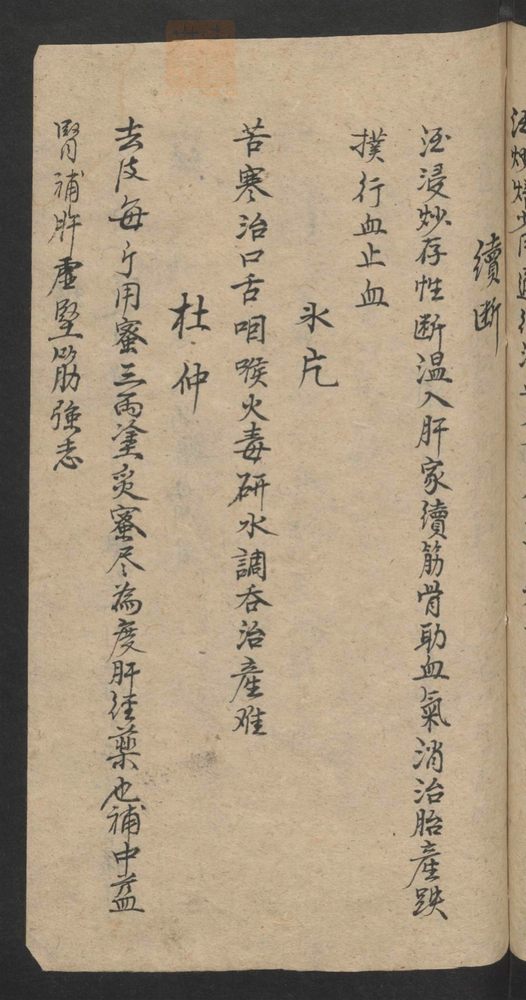 續断
酒浸炒存性断温入肝家續筋骨助血氣消治胎產跌
撲行血止血
氷片
苦寒治口舌咽喉火毒研水調吞治產难
杜仲
去皮每斤用蜜三两塗炙蜜尽為度肝経藥也補中益
腎補肝虛堅筋強志